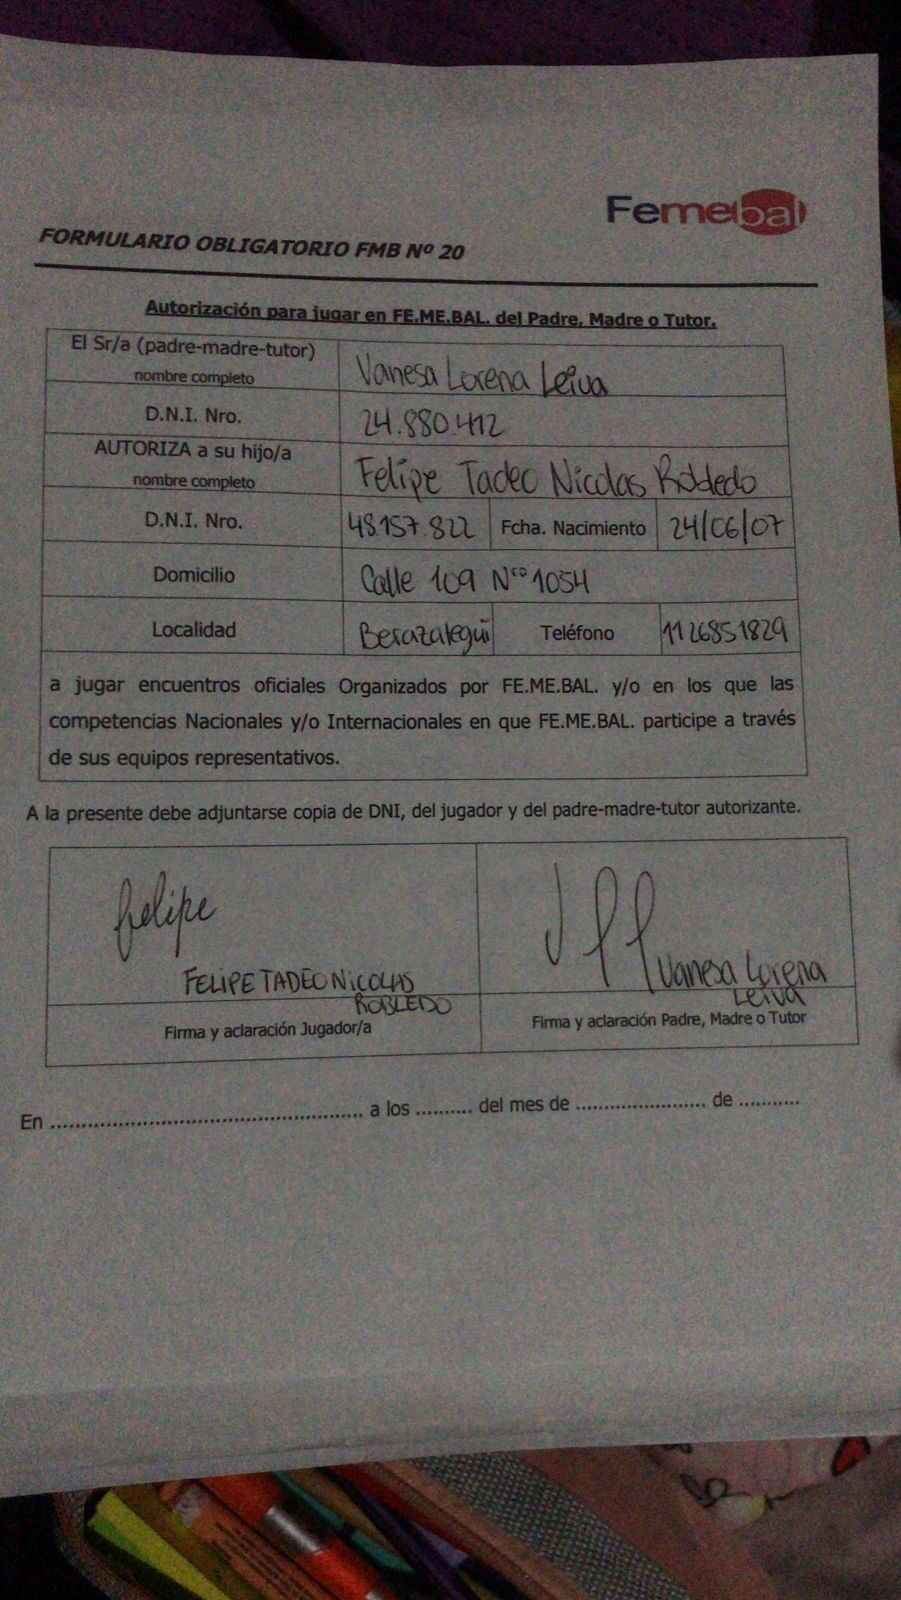 Femebal
FORMULARIO OBLIGATORIO FMB Nº 20
Autorización para jugar en FE.ME.BAL. del Padre, Madre o Tutor.
El Sr/a (padre-madre-tutor)
nombre completo
Vanesa Lorena Leiva
D.N.I. Nro.
24.880.412
AUTORIZA a su hijo/a
nombre completo
Felipe Tadeo Nicolas Robledo
D.N.I. Nro.
48.157.822
Fcha. Nacimiento
24/06/07
Domicilio
Calle 109 Nro 1054
Localidad
Berazategui
Teléfono
1126851829
a jugar encuentros oficiales Organizados por FE.ME.BAL. y/o en los que las
competencias Nacionales y/o Internacionales en que FE.ME.BAL. participe a través
de sus equipos representativos.
A la presente debe adjuntarse copia de DNI, del jugador y del padre-madre-tutor autorizante.
felipe
FELIPE TADEO NICOLAS
ROBLEDO
Firma y aclaración Jugador/a
Vanesa Lorena
Leiva
Firma y aclaración Padre, Madre o Tutor
En .................................................. a los .......... del mes de ...................... de ...........